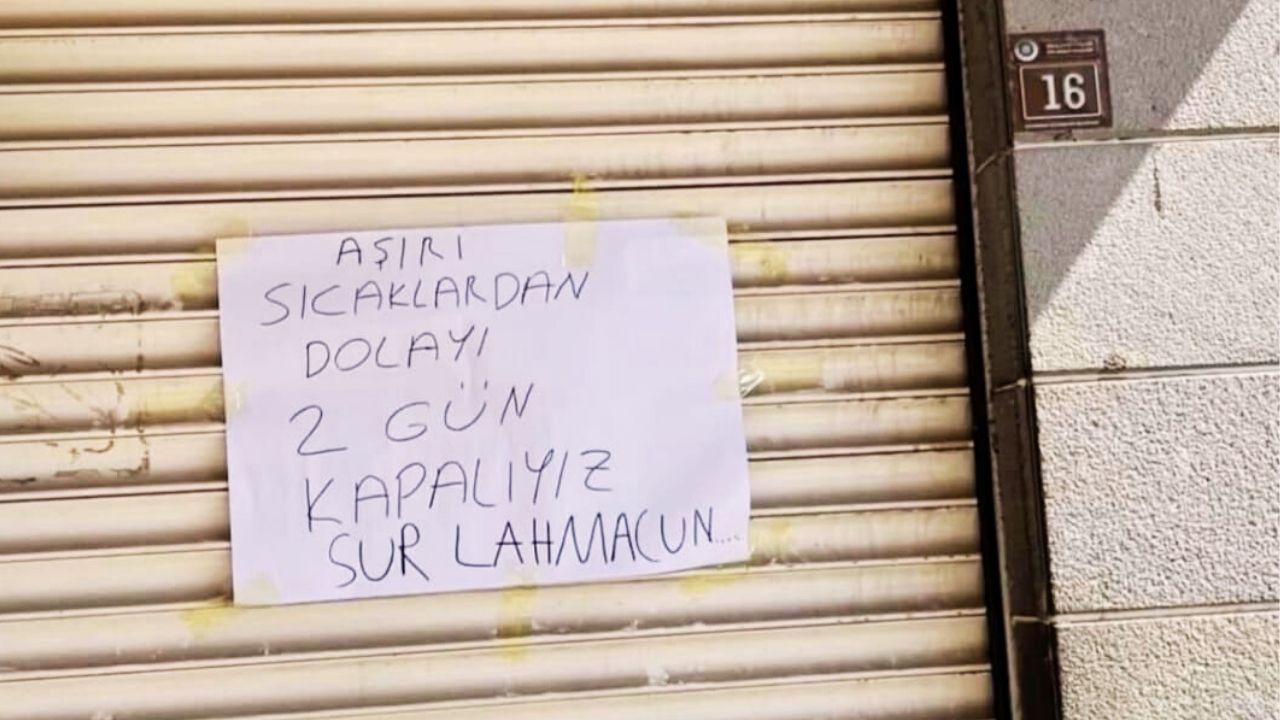 AŞIRI
SICAKLARDAN
DOLAYI
2 GÜN
KAPALIYIZ
SUR LAHMACUN....
16